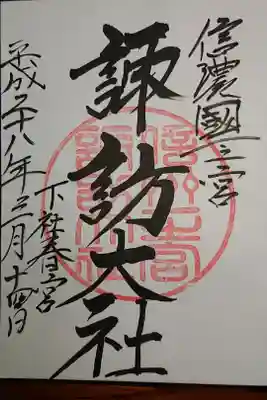 信濃國一之宮
諏訪大社
下社春宮
平成二十八年三月十四日